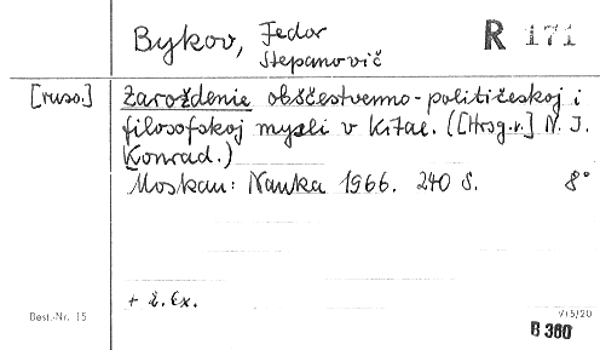 Bykov, Fedor R 171
Stepanovič
[russ.] Zaroždenie obščestvenno-političeskoj i
filosofskoj mysli v Kitae. ([Hrsg.v.] N. J.
Konrad.)
Moskau: Nauka 1966. 240 S. 8°
+ 2. Ex.
Best.-Nr. 15 V/5/20
B 360